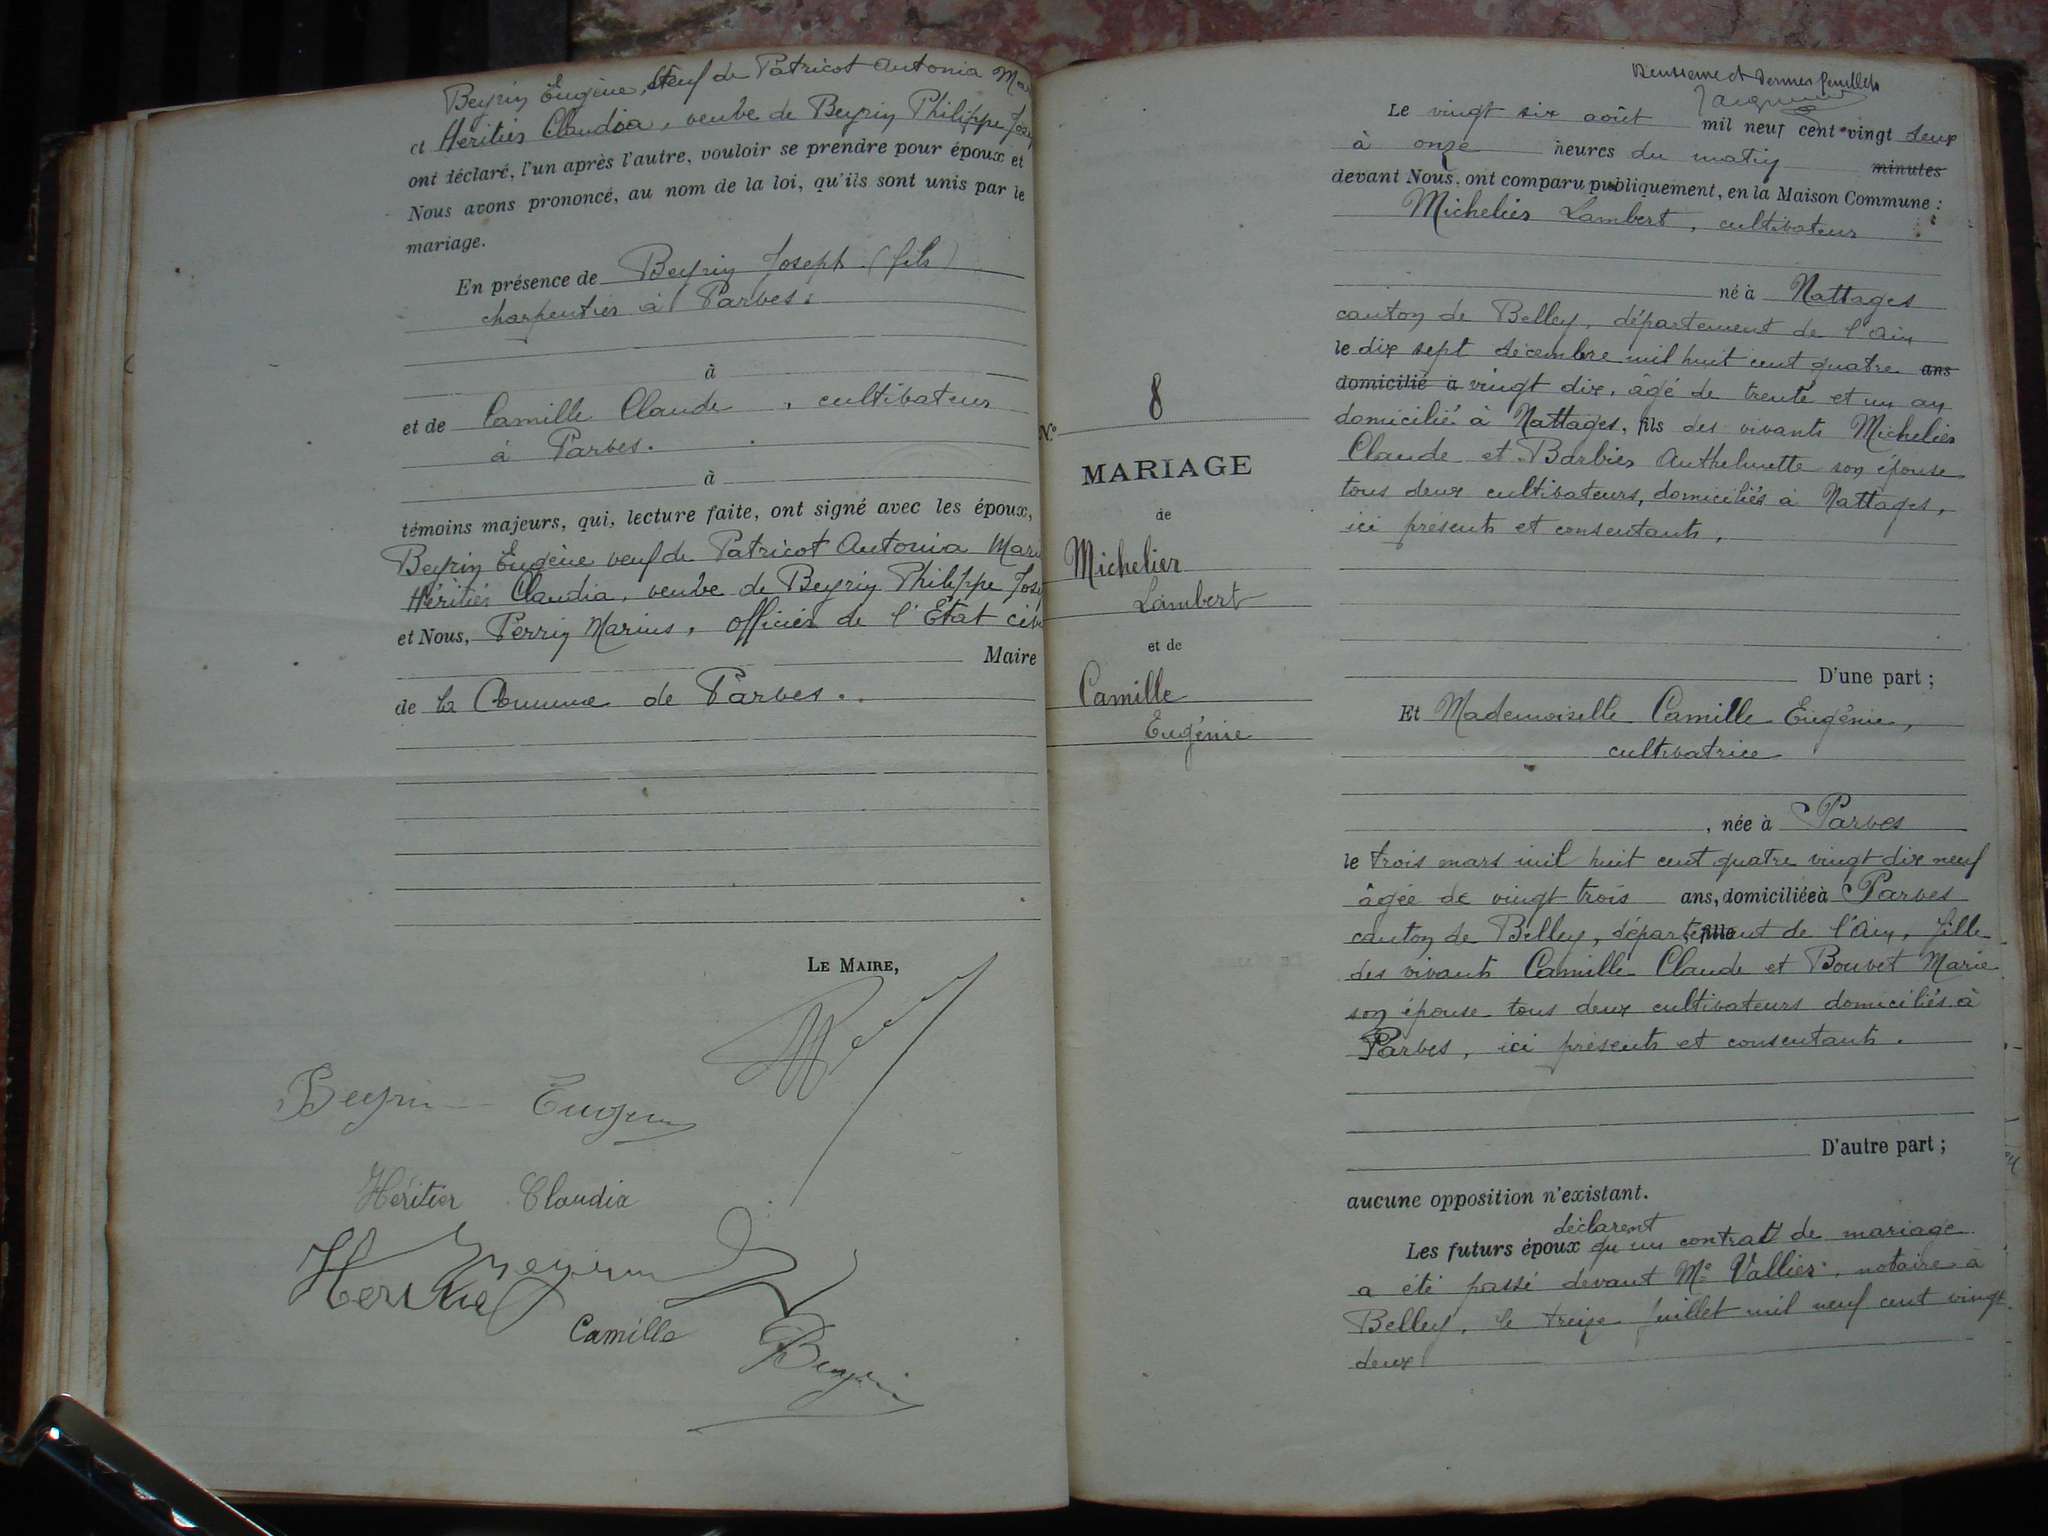 Beyrin Eugène, veuf de Patricot Antonia Mar
et Héritier Claudia, veuve de Beyrin Philippe Jos
ont déclaré, l'un après l'autre, vouloir se prendre pour époux et
Nous avons prononcé, au nom de la loi, qu'ils sont unis par le
mariage.
En présence de Beyrin Joseph (fils)
charpentier à Parves.
à
et de Camille Claude, cultivateur
à Parves.
à
témoins majeurs, qui, lecture faite, ont signé avec les époux,
Beyrin Eugène veuf de Patricot Antonia Mari
Héritier Claudia, veuve de Beyrin Philippe Jos
et Nous, Perrin Marius, officier de l'Etat civ
Maire
de la Commune de Parves.
LE MAIRE,
Beyrin Eugene
Héritier Claudia
Beyrin
Heritier
Camille
Beyrin
N° 8
MARIAGE
de
Michelier
Lambert
et de
Camille
Eugénie
Deuxième et dernier feuillets
Jacquin
Le vingt six août mil neuf cent vingt deux
à onze heures du matin minutes
devant Nous, ont comparu publiquement, en la Maison Commune :
Michelier Lambert, cultivateur
né à Nattages
canton de Belley, département de l'Ain
le dix sept décembre mil huit cent quatre ans
domicilié à vingt dix, âgé de trente et un an
domicilié à Nattages, fils des vivants Michelier
Claude et Barbier Anthelmette son épouse
tous deux cultivateurs, domiciliés à Nattages,
ici présents et consentants.
D'une part ;
Et Mademoiselle Camille Eugénie,
cultivatrice
, née à Parves
le trois mars mil huit cent quatre vingt dix neuf
âgée de vingt trois ans, domiciliée à Parves
canton de Belley, département fille de l'Ain, fille
des vivants Camille Claude et Bouvet Marie
son épouse tous deux cultivateurs domiciliés à
Parves, ici présents et consentants.
D'autre part ;
aucune opposition n'existant.
déclarent
Les futurs époux qu'un contrat de mariage
a été passé devant Me Vallier, notaire à
Belley, le treize juillet mil neuf cent vingt
deux